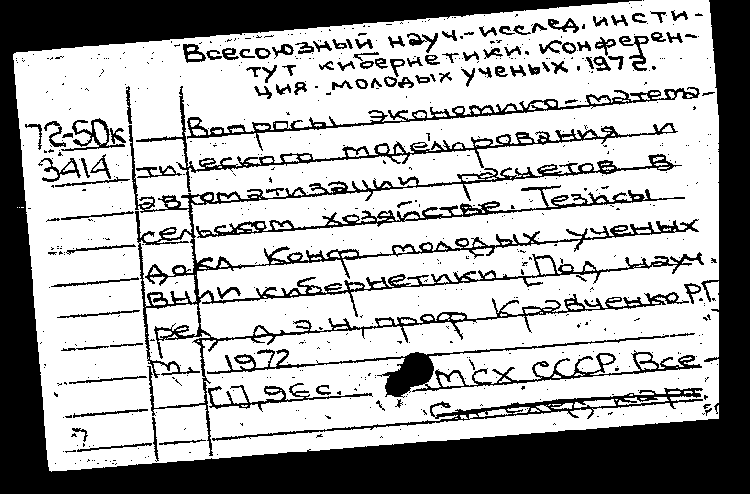 Всесоюзный науч.-исслед. инсти-
тут кибернетики. Конферен-
ция молодых ученых. 1972.
72-50к
3414
Вопросы экономико-матема-
тического моделирования и
автоматизации расчетов в
сельском хозяйстве. Тезисы
докл. Конф молодых ученых
ВНИИ кибернетики. [Под науч.
ред. д.э.н., проф Кравченко Р.Г.
М. 1972
[1], 96 с. МСХ СССР. Все-
См. след. карт.
7